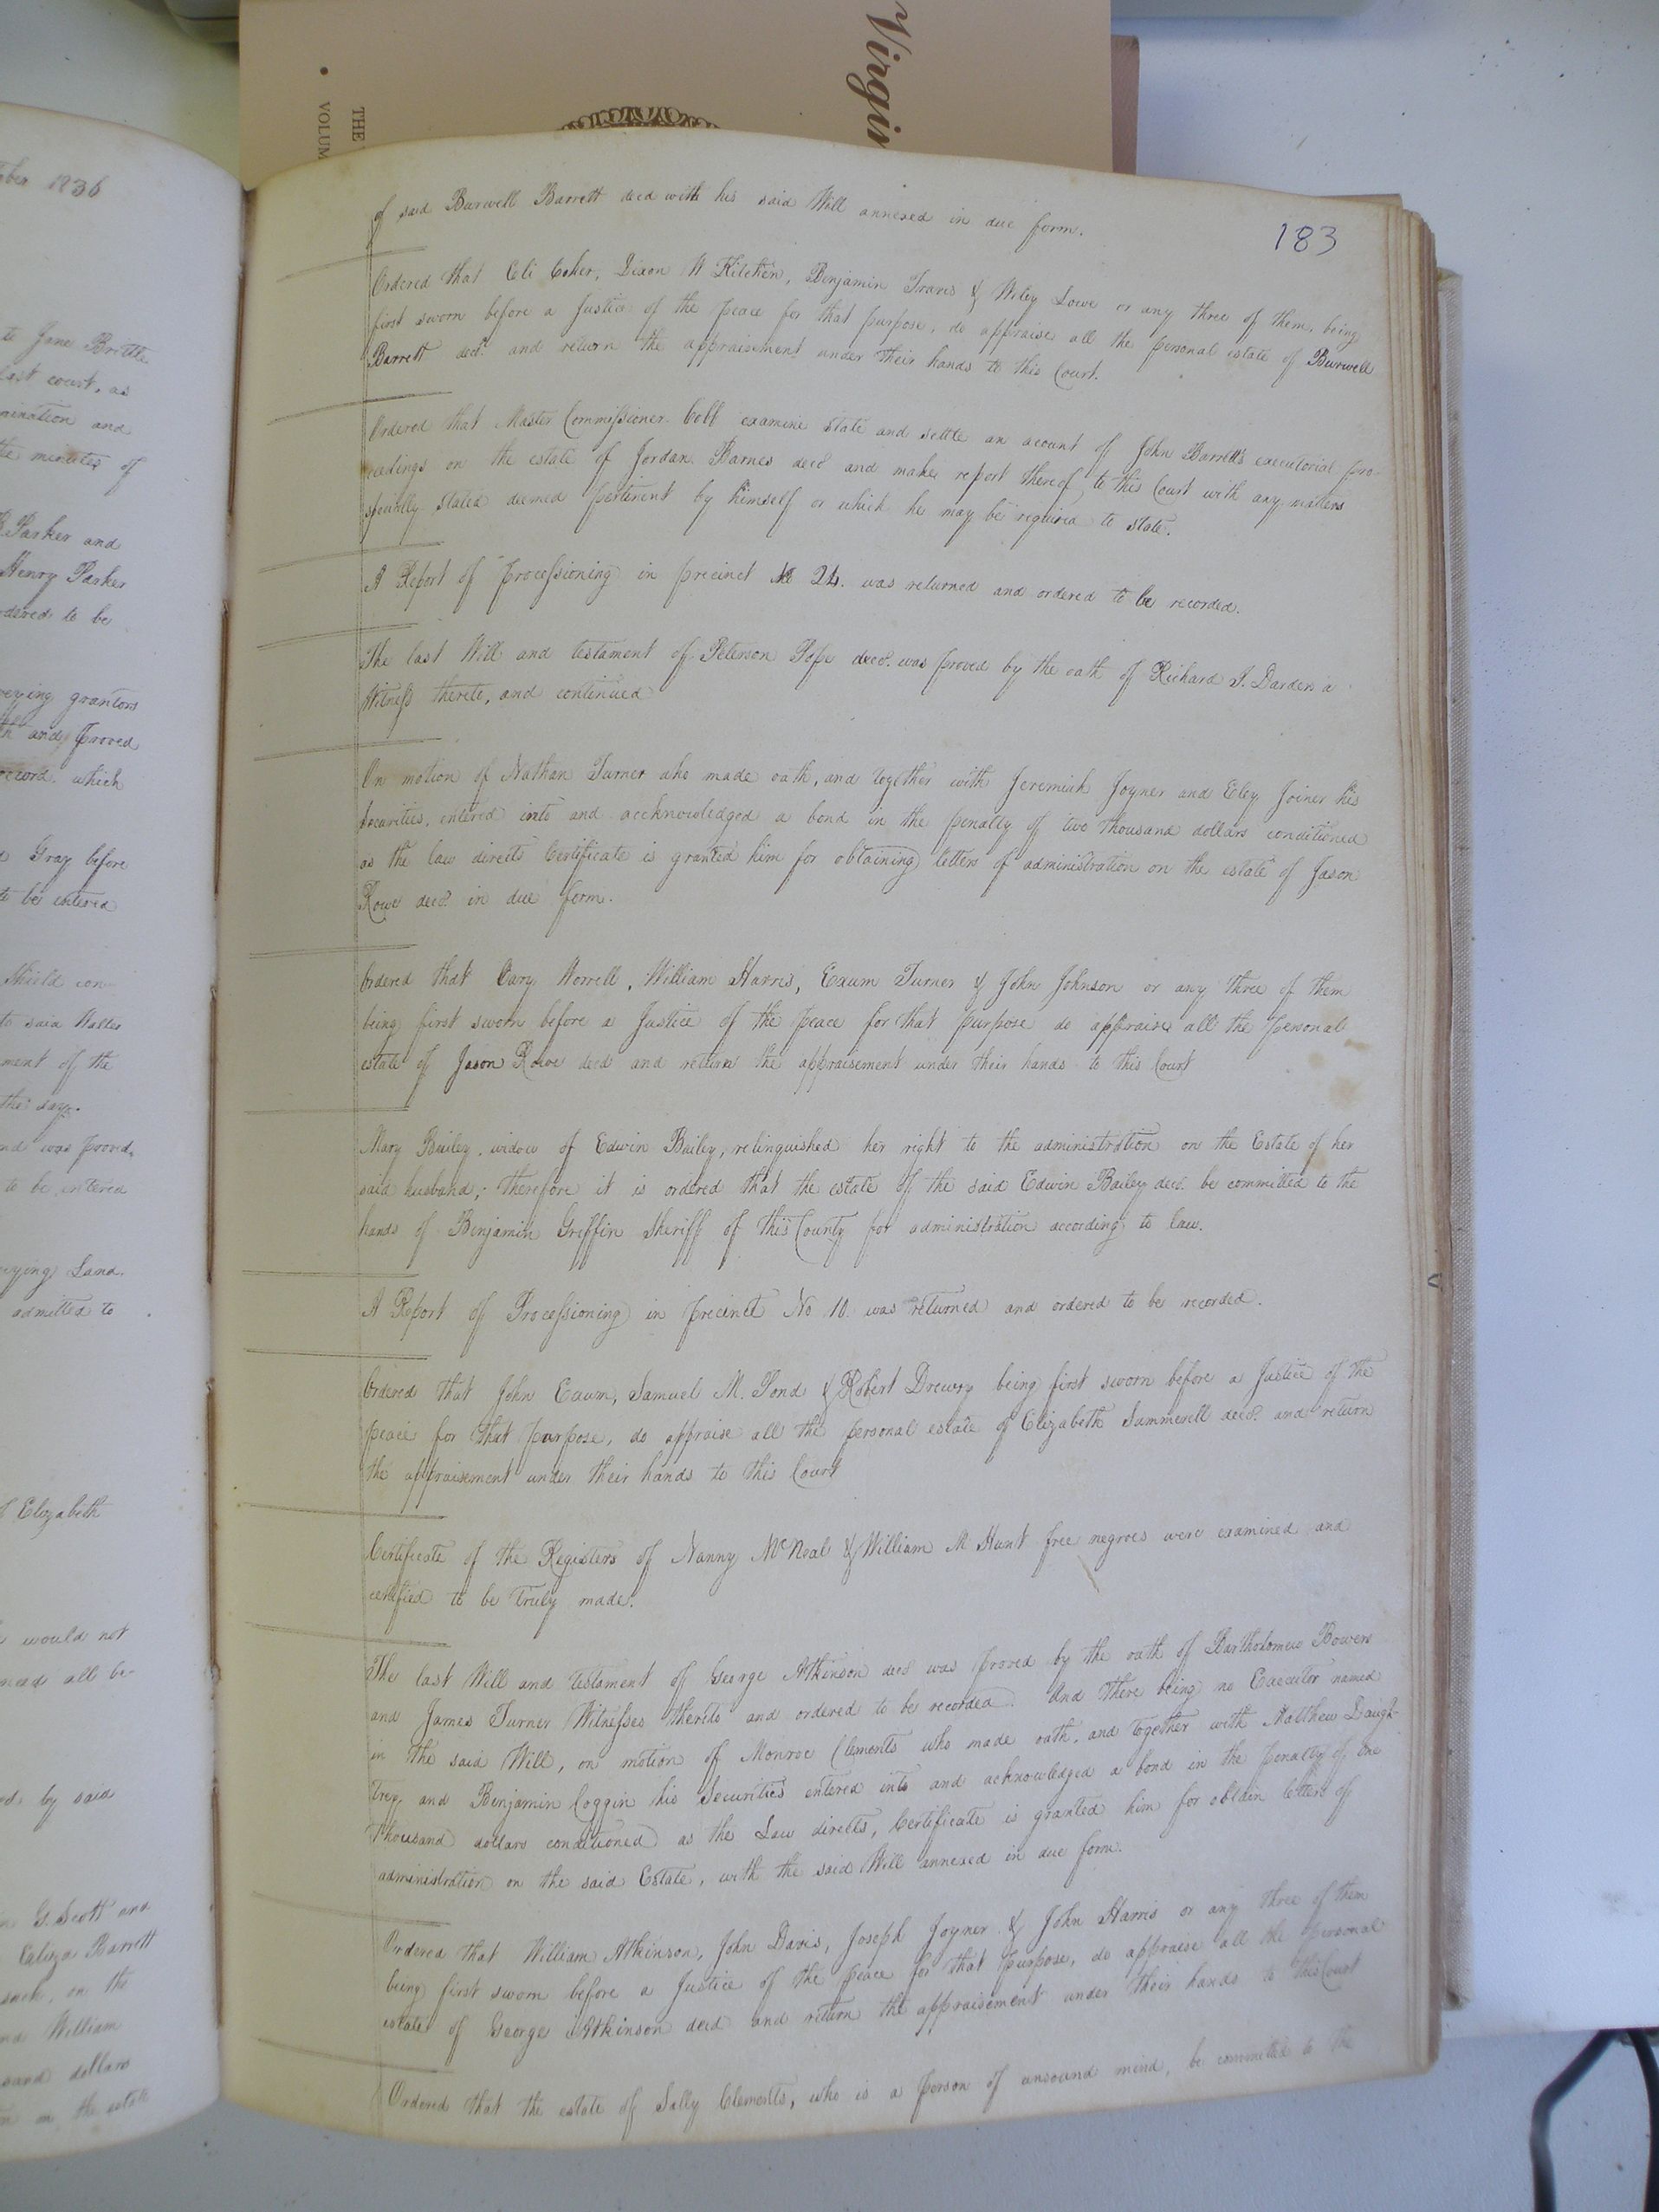 Virgin
THE
VOLUM
1836
to Jane Brittle
last court, as
mination and
the minutes of
Parker and
Henry Parker
ordered to be
veying grantors
and proved
record. which
Gray before
to be entered
Shield con-
to said Walter
ment of the
the say.
and was proved,
to be entered
veying Land.
admitted to
Elizabeth
would not
mead all be-
by said
G. Scott and
Barrett
on the
and William
sand dollars
on the estate
183
of said Burwell Barrett decd with his said Will annexed in due form.
Ordered that Eli Coker, Dixon W Kitchen, Benjamin Travis & Wiley Lowe or any three of them, being
first sworn before a Justice of the peace for that purpose, do appraise all the personal estate of Burwell
Barrett decd. and return the appraisement under their hands to this Court.
Ordered that Master Commissioner Cobb examine state and settle an acount of John Barrett's executorial pro-
ceedings on the estate of Jordan Barnes decd and make report thereof to this Court with any matters
specially stated deemed pertinent by himself or which he may be required to state.
A Report of Processioning in precinct No 24. was returned and ordered to be recorded.
The last Will and testament of Peterson Pope decd. was proved by the oath of Richard J. Darden a
Witness thereto, and continued
On motion of Nathan Turner who made oath, and together with Jeremiah Joyner and Eley Joiner his
securities, entered into and accknowledged a bond in the penalty of two thousand dollars conditioned
as the law directs Certificate is granted him for obtaining letters of administration on the estate of Jason
Rowe decd. in due form.
Ordered that Cary Worrell, William Harris, Exum Turner & John Johnson or any three of them
being first sworn before a Justice of the peace for that purpose do appraise all the personal
estate of Jason Rowe decd and return the appraisement under their hands to this Court
Mary Bailey, widow of Edwin Bailey, relinquished her right to the administration on the Estate of her
said husband; therefore it is ordered that the estate of the said Edwin Bailey decd. be committed to the
hands of Benjamin Griffin Sheriff of this County for administration according to law.
A Report of Processioning in precinct No 10. was returned and ordered to be recorded.
Ordered that John Exum, Samuel M. Pond & Robert Drewry being first sworn before a Justice of the
peace for that purpose, do appraise all the personal estate of Elizabeth Summerell decd. and return
the appraisement under their hands to this Court
Certificate of the Registers of Nanny McNeal & William M Hunt free negroes were examined and
certified to be truly made.
The last Will and testament of George Atkinson decd was proved by the oath of Bartholomew Bowers
and James Turner Witnesses thereto and ordered to be recorded. And there being no Executor named
in the said Will, on motion of Monroe Clements who made oath, and together with Matthew Daugh-
trey and Benjamin Coggin his Securities entered into and acknowledged a bond in the penalty of one
thousand dollars conditioned as the Law directs, Certificate is granted him for obtain letters of
administration on the said Estate, with the said Will annexed in due form.
Ordered that William Atkinson, John Davis, Joseph Joyner & John Harris or any three of them
being first sworn before a Justice of the peace for that purpose, do appraise all the personal
estate of George Atkinson decd and return the appraisement under their hands to this Court
Ordered that the estate of Sally Clements, who is a person of unsound mind, be committed to the